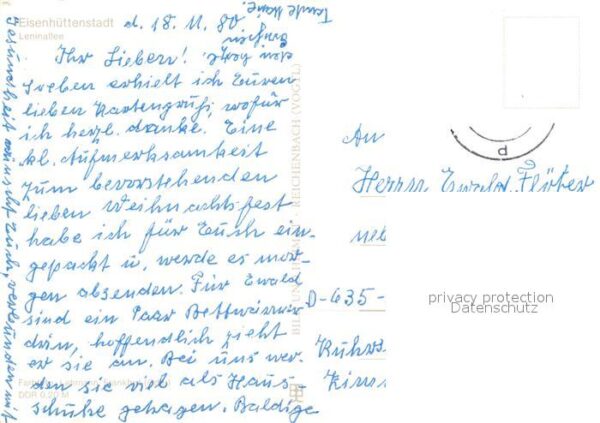 Eisenhüttenstadt
Leninallee
d. 18. 11. 80
Ihr Lieben!
Soeben erhielt ich Euren
lieben Kartengruß, wofür
ich herzl. danke. Eine
kl. Aufmerksamkeit
zum bevorstehenden
lieben Weihnachtsfest
habe ich für Euch ein-
gepackt u. werde es mor-
gen absenden. Für Ewald
sind ein Paar Bettwärmer
drin, hoffendlich zieht
er sie an. Bei uns wer-
den sie viel als Haus-
schuhe getragen. Baldige
Gesundheit wünscht Euch, verbunden mit
Tante
An
Herrn Ewald Flöter
D-635-
privacy protection
Datenschutz
REICHENBACH (VOGTL)
DDR 0,20 M